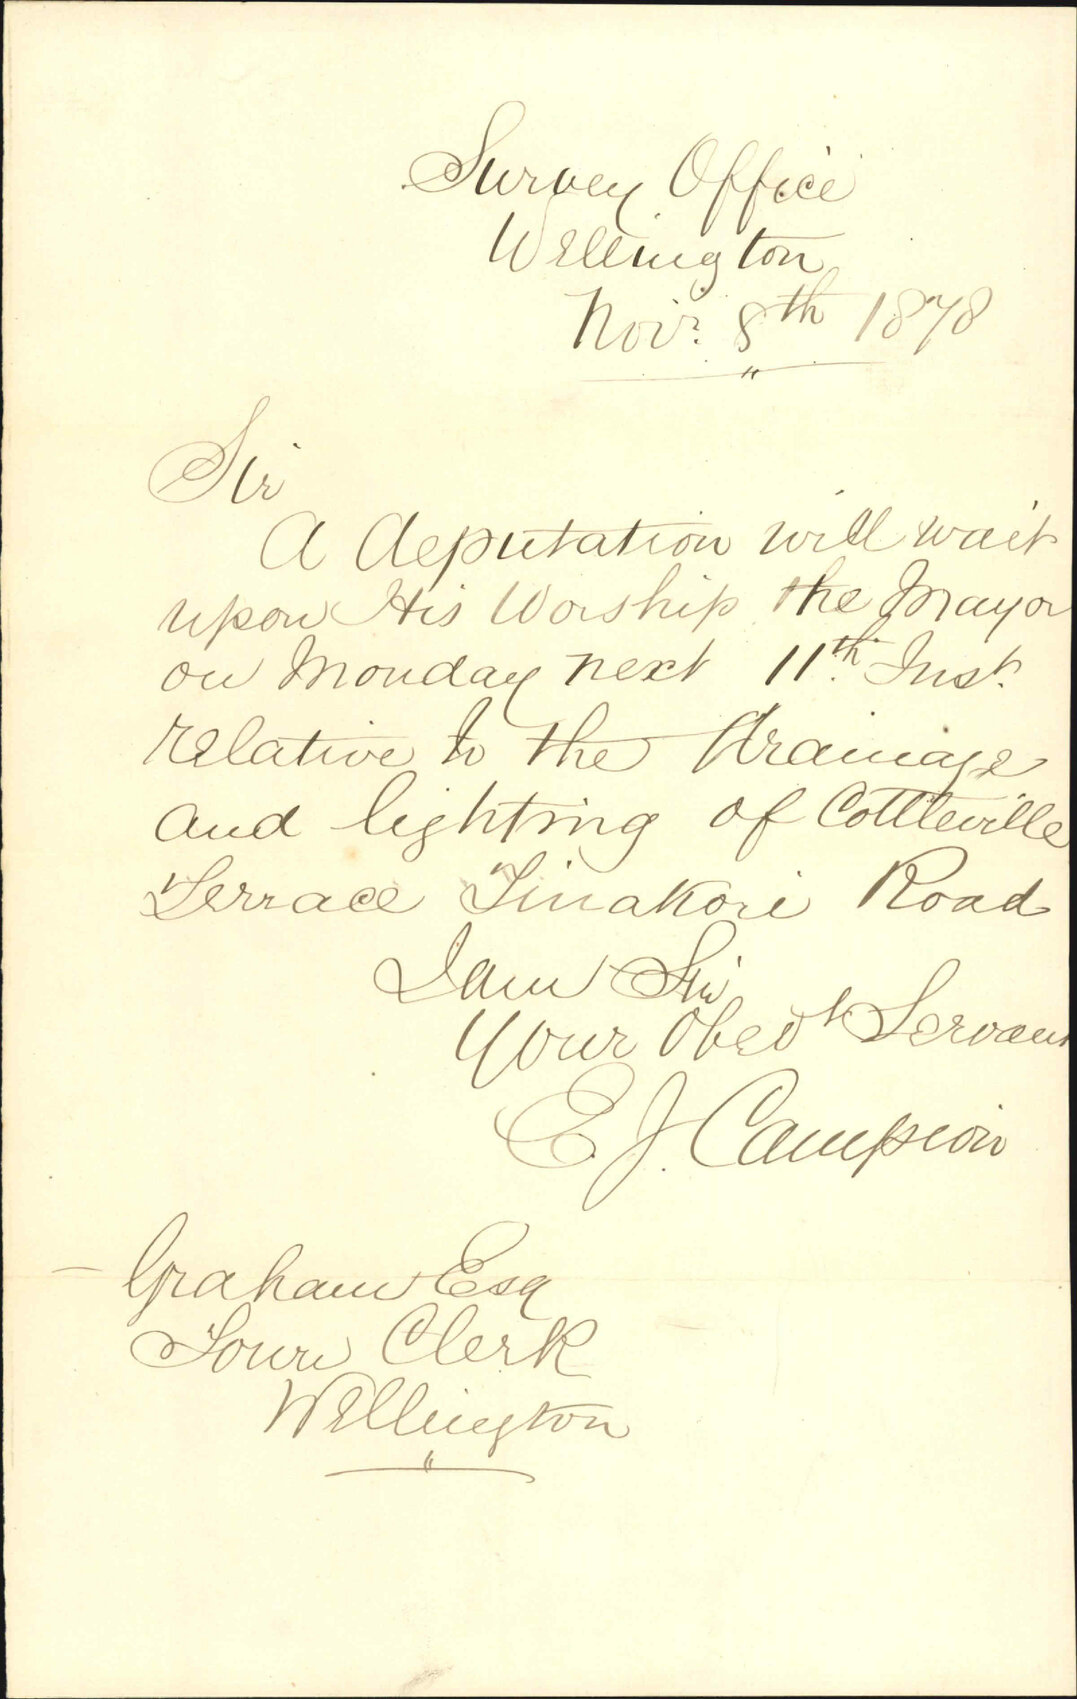 Survey Office
Wellington
Novr. 8th 1878
Sir
A deputation will wait
upon His Worship the Mayor
on Monday next 11th. Inst.
relative to the drainage
and lighting of Cottleville
Terrace Tinakori Road
I am Sir
Your Obedt Servant
E. J. Campion
— Graham Esq
Town Clerk
Wellington